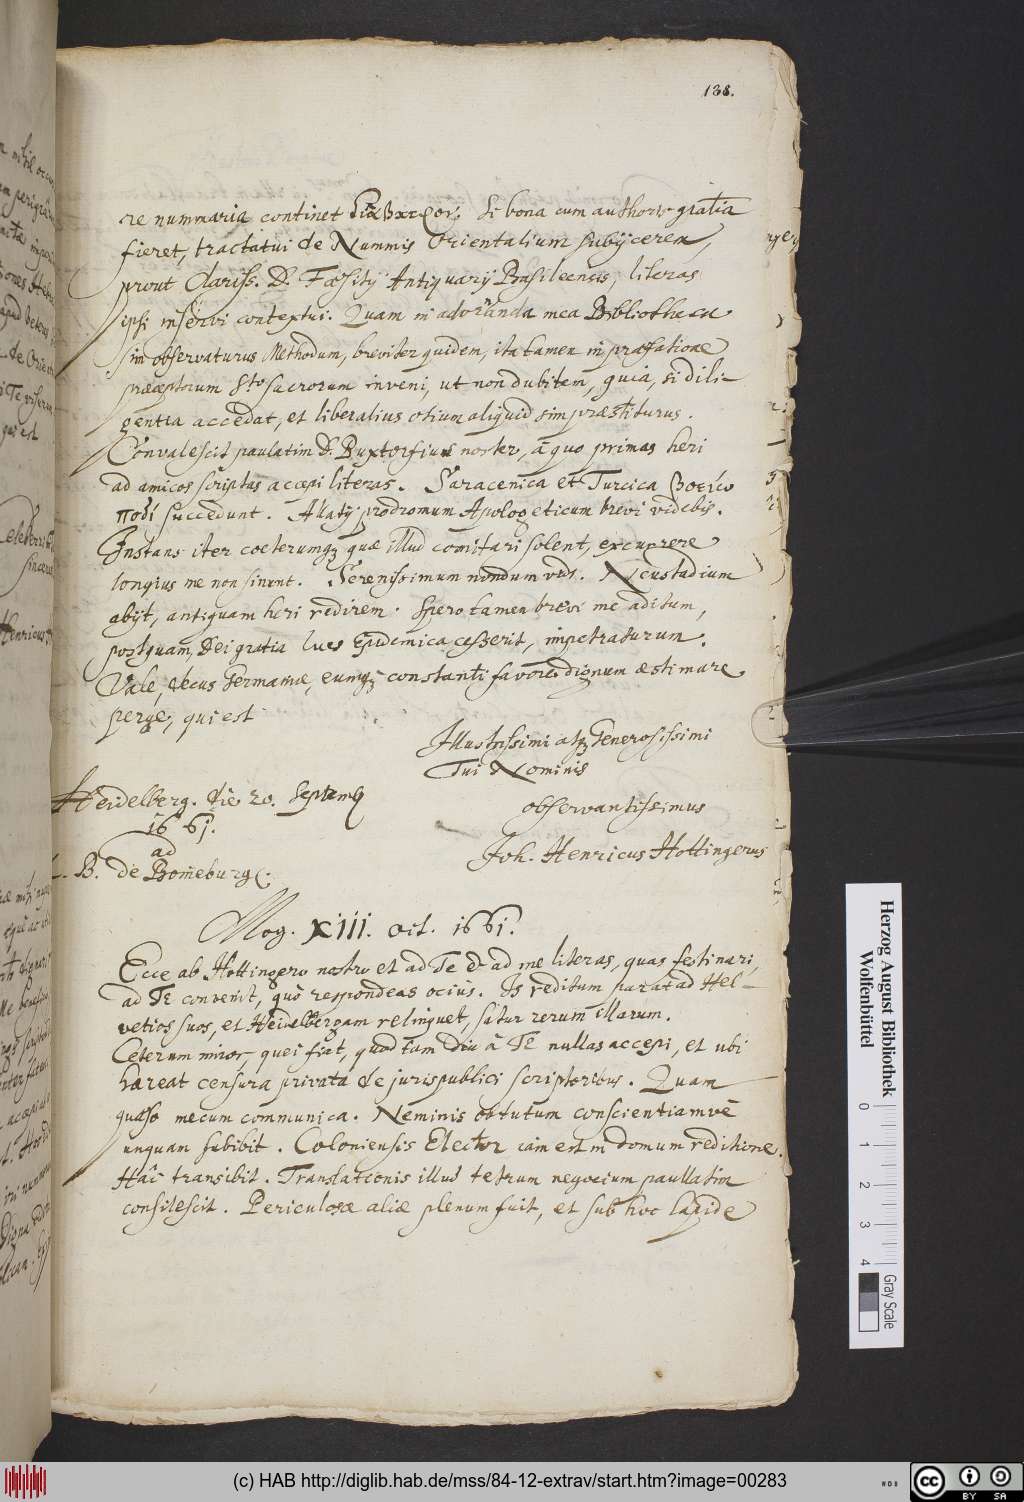 138.
re nummaria continet Si bona cum authoris gratia
fieret, tractatui de Nummis Orientalium subijcerem,
prout Clariss. D. Fæsity Antiquarij Basileensis, literas
ipsi inserui contextui. Quam in adornanda mea Bibliotheca
sim observaturus Methodum, breviter quidem, ita tamen in præfatione
præceptorum inveni, ut non dubitem, quia, si dili-
gentia accedat, et liberalius otium aliquid sim præstiturus.
Convalescit paulatim D. Buxtorfius noster, â quo primas heri
ad amicos scriptas accepi literas. Saracenica et Turcica βοείῳ
ποδί succedunt. Allatij prodromum Apologeticum brevi videbis.
Instans iter coeterumq; quæ illud comitari solent, excurrere
longius me non sinunt. Serenissimum nondum vidi. Neustadium
abijt, antiquam heri redirem. Spero tamen brevi me aditum,
postquam, Dei gratia lues Epidemica cesserit, impetraturum.
Vale, decus Germaniæ, eumq; constanti favore dignum æstimare
perge, qui est
Illustrissimi atq; Generosissimi
Tui Nominis
observantissimus
Joh. Henricus Hottingerus
Heidelberg. die 20. Septemb
1661.
ad
L. B. de Boineburg.
Mog. XIII. oct. 1661.
Ecce ab Hottingero nostro et ad Te & ad me literas, quas festinari,
ad Te convenit, quò respondeas ociùs. Is reditum parat ad Hel-
vetios suos, et Heidelbergam relinquet, satur rerum illarum.
Ceterum miror, quei fiat, quod tam diu â Te nullas accepi, et ubi
hæreat censura privata de jurispublici scriptoribus. Quam
quæso mecum communica. Neminis obtutum conscientiamvè
unquam subibit. Coloniensis Elector iam est in domum reditione.
Hâc transibit. Translationis illud tetrum negocium paullatim
consilescit. Periculosæ aliæ plenum fuit, et sub hoc lapide
Herzog August Bibliothek
Wolfenbüttel
0 1 2 3 4
Gray Scale
(c) HAB http://diglib.hab.de/mss/84-12-extrav/start.htm?image=00283
cc BY SA